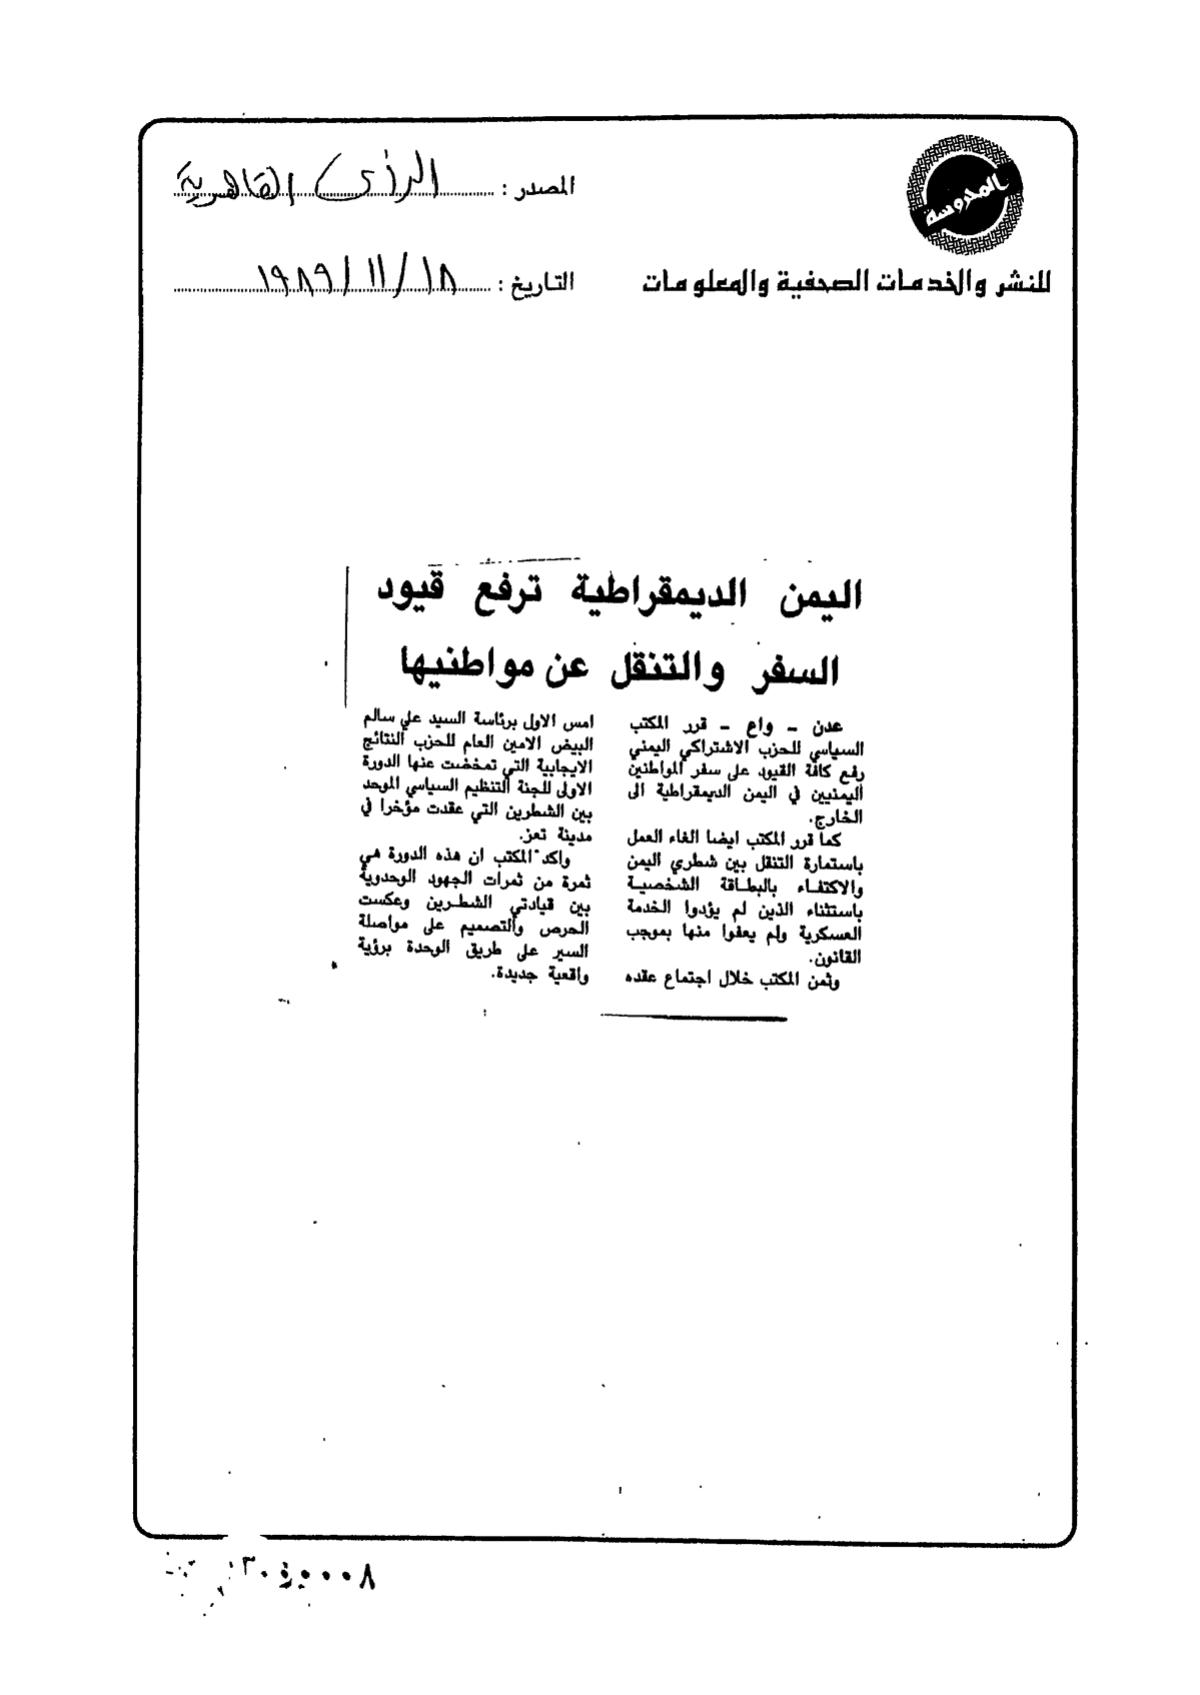 المحروسة
للنشر والخدمات الصحفية والمعلومات
المصدر : الرأى القاهرية
التاريخ : ١٩٨٩/١١/١٨
اليمن الديمقراطية ترفع قيود
السفر والتنقل عن مواطنيها
عدن - واع - قرر المكتب
السياسي للحزب الاشتراكي اليمني
رفع كافة القيود على سفر المواطنين
اليمنيين في اليمن الديمقراطية الى
الخارج.
كما قرر المكتب ايضا الغاء العمل
باستمارة التنقل بين شطري اليمن
والاكتفاء بالبطاقة الشخصية
باستثناء الذين لم يؤدوا الخدمة
العسكرية ولم يعفوا منها بموجب
القانون.
وثمن المكتب خلال اجتماع عقده
امس الاول برئاسة السيد علي سالم
البيض الامين العام للحزب النتائج
الايجابية التي تمخضت عنها الدورة
الاولى للجنة التنظيم السياسي الموحد
بين الشطرين التي عقدت مؤخرا في
مدينة تعز.
واكد المكتب ان هذه الدورة هي
ثمرة من ثمرات الجهود الوحدوية
بين قيادتي الشطرين وعكست
الحرص والتصميم على مواصلة
السير على طريق الوحدة برؤية
واقعية جديدة.